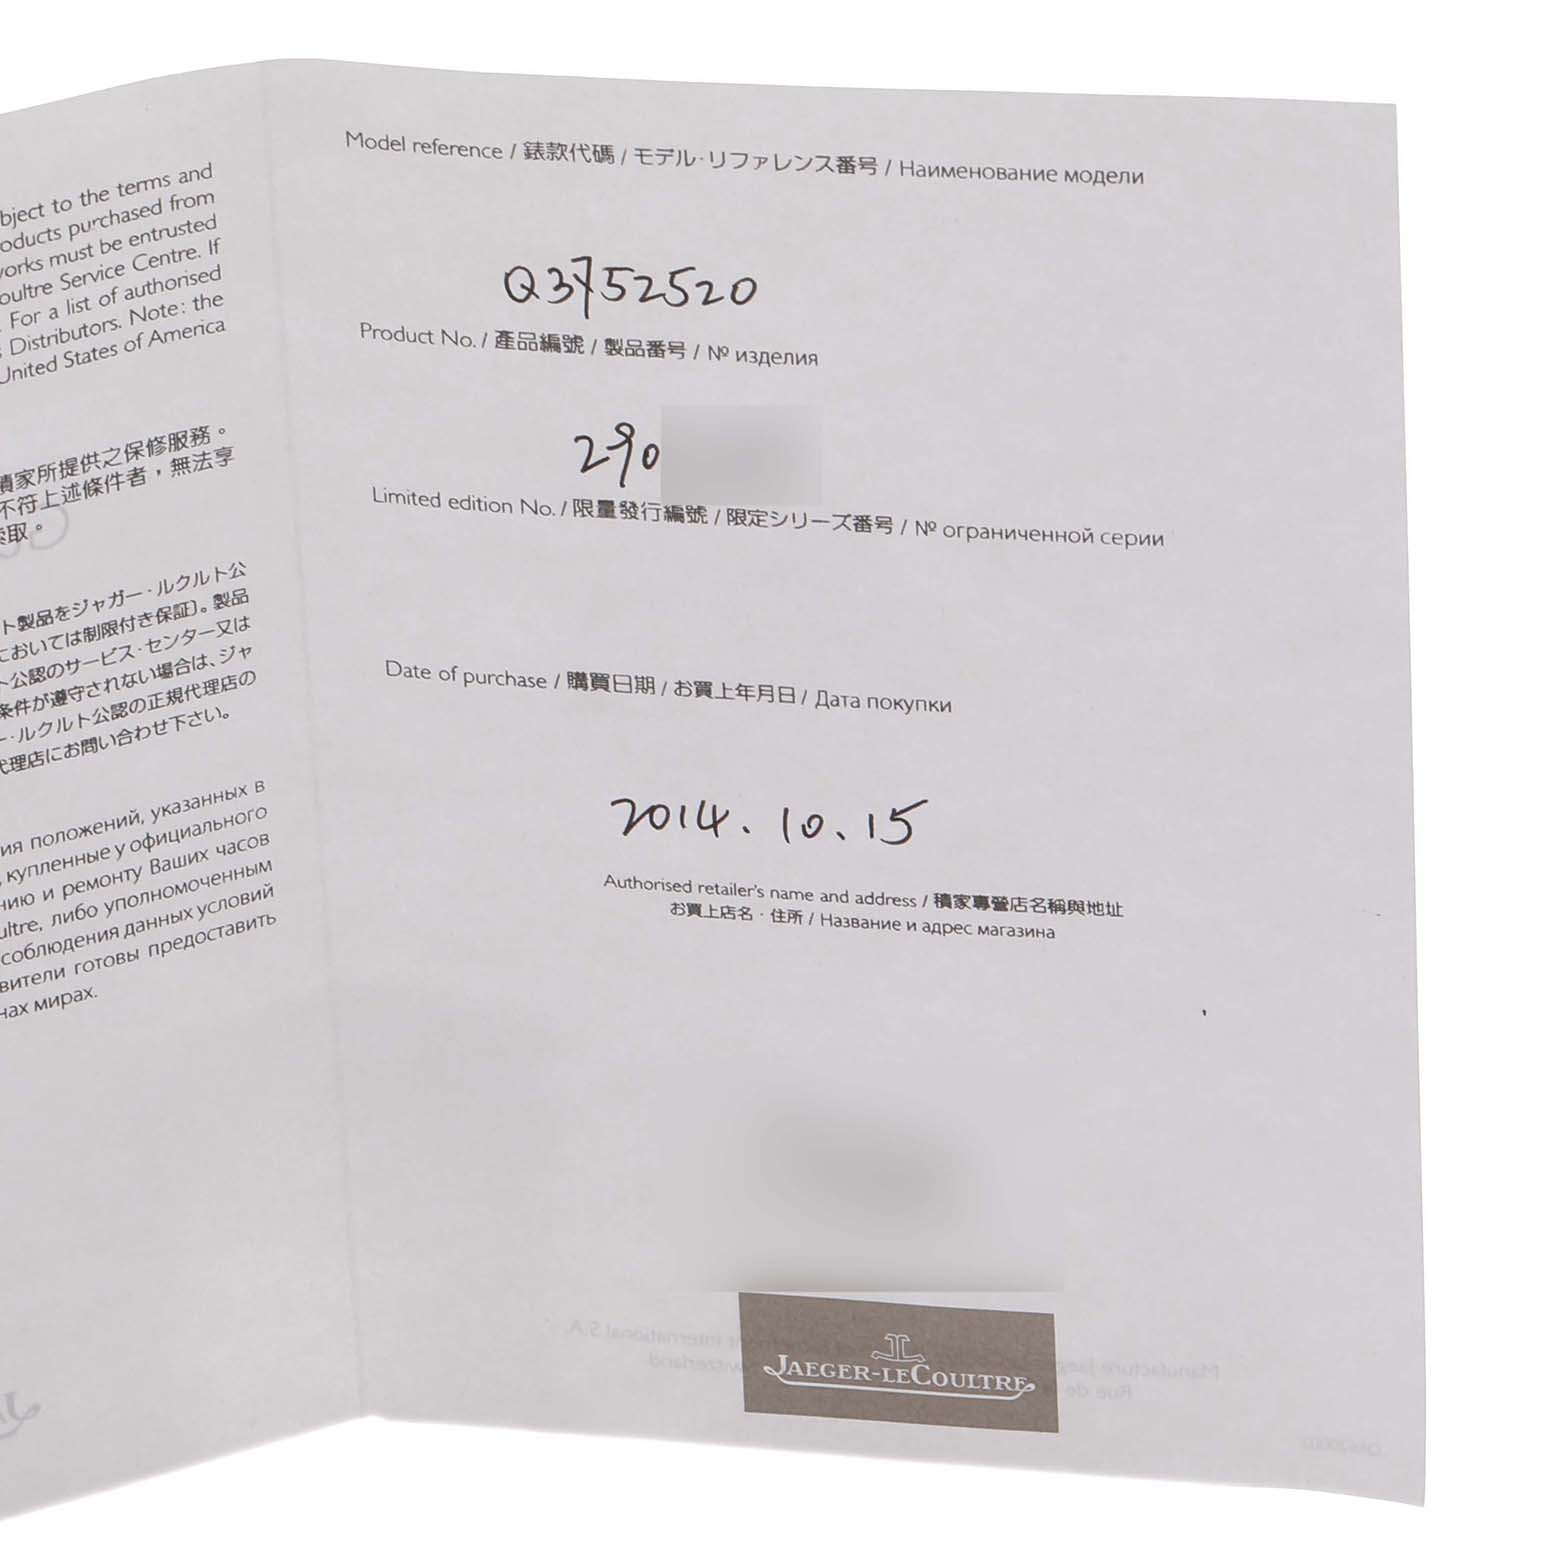 bject to the terms and
oducts purchased from
orks must be entrusted
oultre Service Centre. If
. For a list of authorised
s Distributors. Note: the
United States of America
積家所提供之保修服務。
不符上述條件者，無法享
索取。
ト製品をジャガー・ルクルト公
においては制限付き保証)。製品
ト公認のサービス・センター又は
条件が遵守されない場合は、ジャ
ー・ルクルト公認の正規代理店の
代理店にお問い合わせ下さい。
ия положений, указанных в
, купленные у официального
нию и ремонту Ваших часов
ultre, либо уполномоченным
соблюдения данных условий
вители готовы предоставить
нах мирах.
Model reference / 錶款代碼 / モデル・リファレンス番号 / Наименование модели
Q3752520
Product No. / 產品編號 / 製品番号 / № изделия
290
Limited edition No. / 限量發行編號 / 限定シリーズ番号 / № ограниченной серии
Date of purchase / 購買日期 / お買上年月日 / Дата покупки
2014.10.15
Authorised retailer's name and address / 積家專營店名稱與地址
お買上店名・住所 / Название и адрес магазина
JAEGER-LECOULTRE